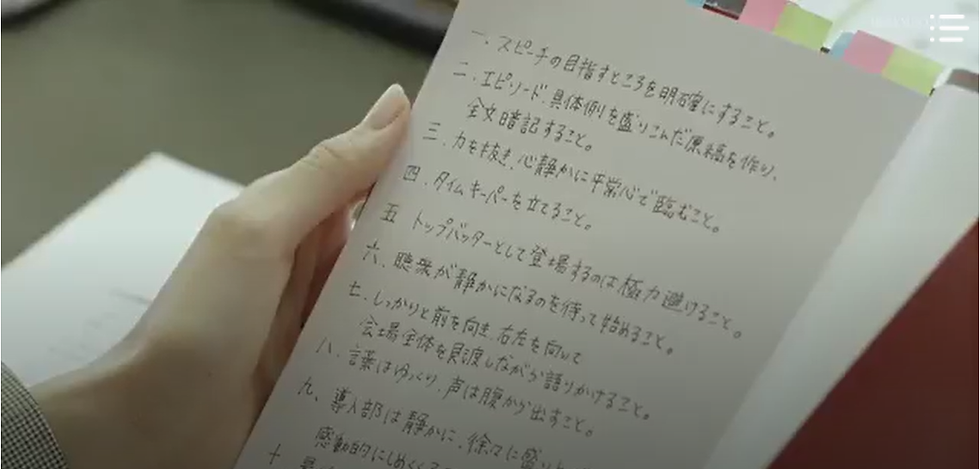 一、スピーチの目指すところを明確にすること。
二、エピソード、具体例を盛りこんだ原稿を作り、
全文暗記すること。
三、力を抜き、心静かに平常心で臨むこと。
四、タイムキーパーを立てること。
五、トップバッターとして登場するのは極力避けること。
六、聴衆が静かになるのを待って始めること。
七、しっかりと前を向き、右左を向いて
会場全体を見渡しながら語りかけること。
八、言葉はゆっくり、声は腹から出すこと。
九、導入部は静かに、徐々に盛り
感動的にしめくくる
十、最